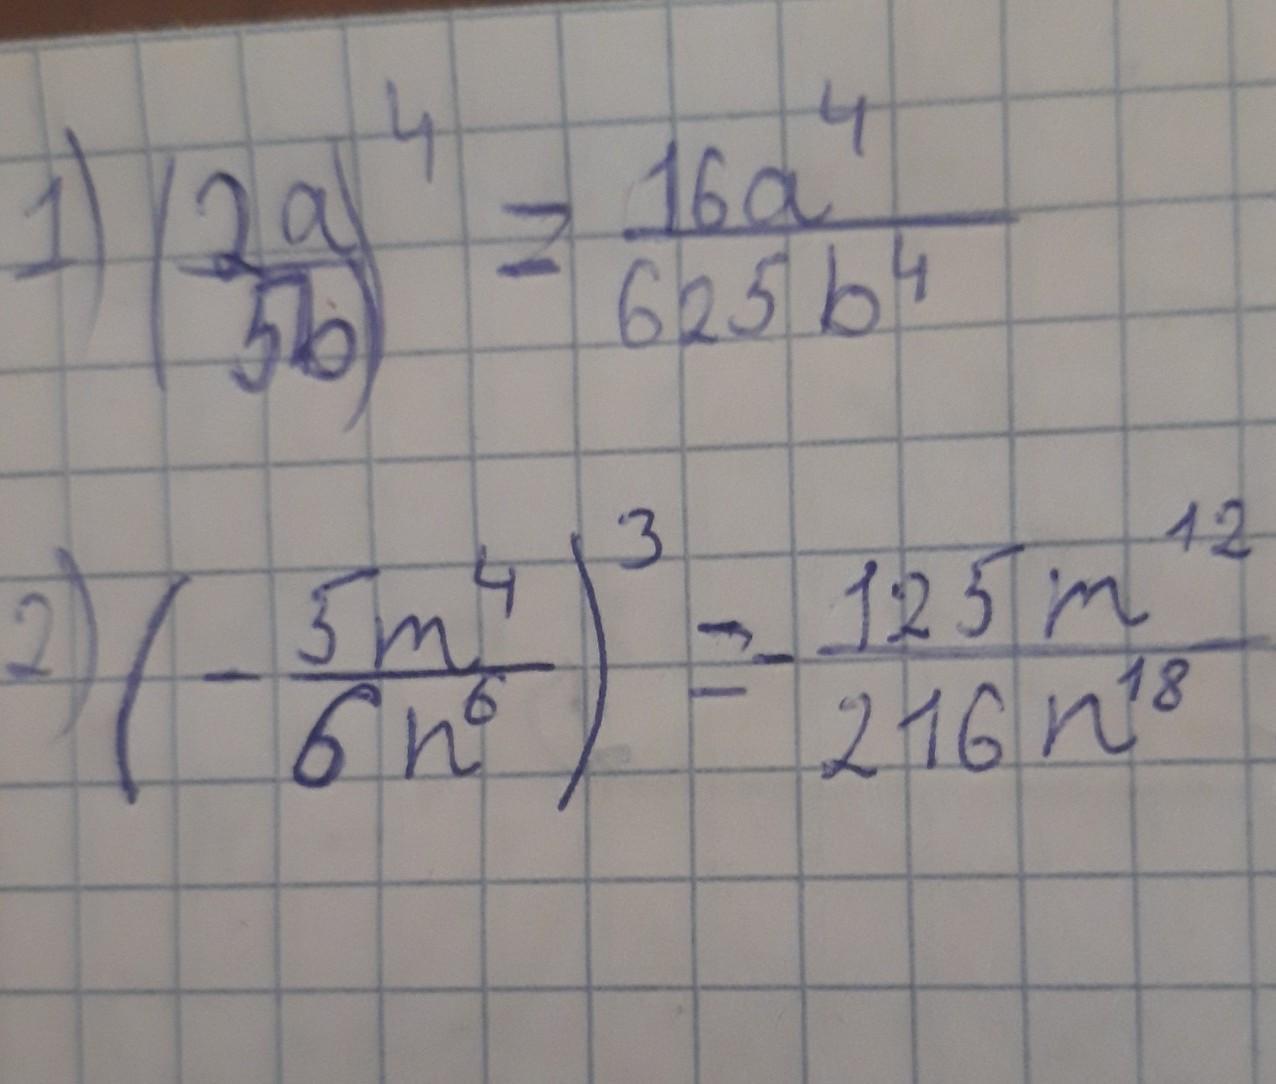 1) (2a/5b)^4 = 16a^4/625b^4
2) (-5m^4/6n^6)^3 = -125m^12/216n^18